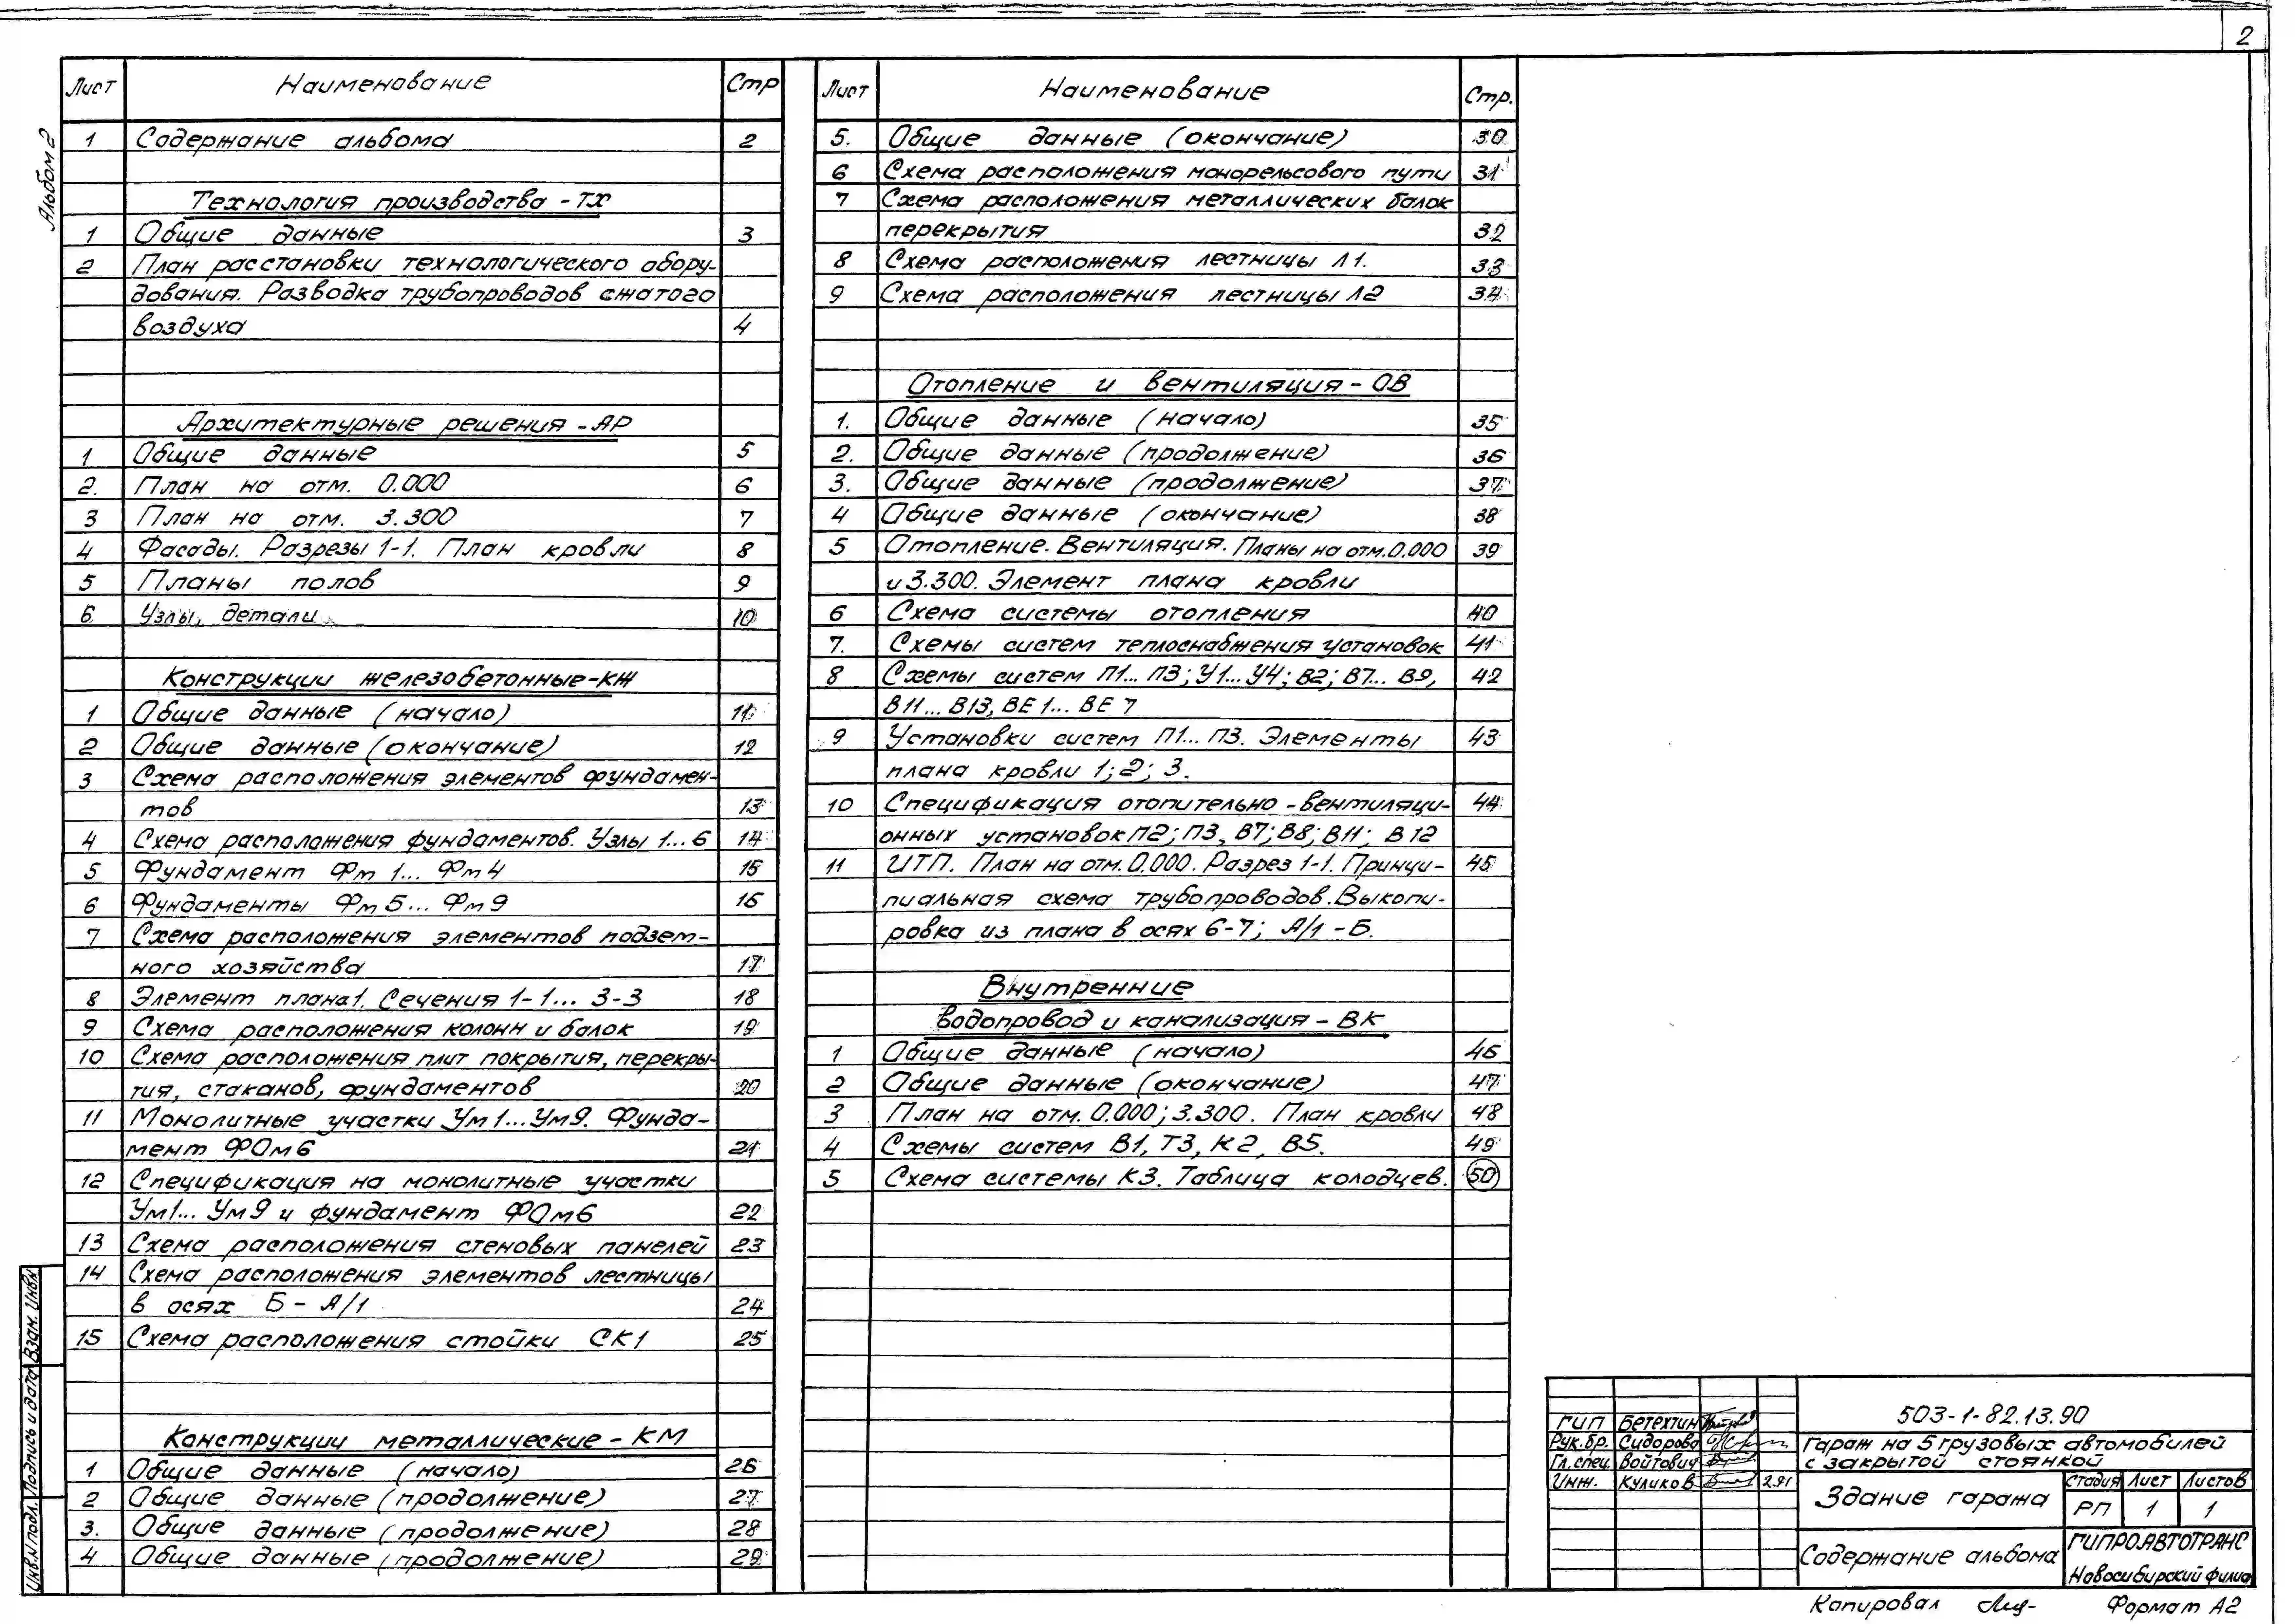 2
Альбом 2
Лист Наименование Стр
1 Содержание альбома 2
Технология производства - ТХ
1 Общие данные 3
2 План расстановки технологического обору-
дования. Разводка трубопроводов сжатого
воздуха 4
Архитектурные решения - АР
1 Общие данные 5
2. План на отм. 0.000 6
3 План на отм. 3.300 7
4 Фасады. Разрезы 1-1. План кровли 8
5 Планы полов 9
6 Узлы, детали 10
Конструкции железобетонные-КЖ
1 Общие данные (начало) 11
2 Общие данные (окончание) 12
3 Схема расположения элементов фундамен-
тов 13
4 Схема расположения фундаментов. Узлы 1...6 14
5 Фундамент Фм 1... Фм 4 15
6 Фундаменты Фм 5... Фм 9 16
7 Схема расположения элементов подзем-
ного хозяйства 17
8 Элемент плана1. Сечения 1-1... 3-3 18
9 Схема расположения колонн и балок 19
10 Схема расположения плит покрытия, перекры-
тия, стаканов, фундаментов 20
11 Монолитные участки Ум 1...Ум9. Фунда-
мент ФОм6 21
12 Спецификация на монолитные участки
Ум1... Ум 9 и фундамент ФОм6 22
13 Схема расположения стеновых панелей 23
14 Схема расположения элементов лестницы
в осях Б - А/1 24
15 Схема расположения стойки СК1 25
Конструкции металлические - КМ
1 Общие данные (начало) 26
2 Общие данные (продолжение) 27
3. Общие данные (продолжение) 28
4 Общие данные (продолжение) 29
Лист Наименование Стр.
5. Общие данные (окончание) 30
6 Схема расположения монорельсового пути 31
7 Схема расположения металлических балок
перекрытия 32
8 Схема расположения лестницы Л1. 33
9 Схема расположения лестницы Л2 34
Отопление и вентиляция - ОВ
1. Общие данные (начало) 35
2. Общие данные (продолжение) 36
3. Общие данные (продолжение) 37
4 Общие данные (окончание) 38
5 Отопление. Вентиляция. Планы на отм. 0.000 39
и 3.300. Элемент плана кровли
6 Схема системы отопления 40
7. Схемы систем теплоснабжения установок 41
8 Схемы систем П1... П3; У1... У4; В2; В7... В9, 42
В11... В13, ВЕ 1... ВЕ 7
9 Установки систем П1... П3. Элементы 43
плана кровли 1; 2; 3.
10 Спецификация отопительно - вентиляци- 44
онных установок П2; П3, В7; В8; В11; В12
11 ИТП. План на отм. 0.000. Разрез 1-1. Принци- 45
пиальная схема трубопроводов. Выкопи-
ровка из плана в осях 6-7; А/1 - Б.
Внутренние
водопровод и канализация - ВК
1 Общие данные (начало) 46
2 Общие данные (окончание) 47
3 План на отм. 0.000; 3.300. План кровли 48
4 Схемы систем В1, Т3, К2, В5. 49
5 Схема системы К3. Таблица колодцев. 50
Инв.N подл. Подпись и дата Взам. Инв.N
503-1-82.13.90
ГИП Бетехтин
Рук.бр. Сидорова
Гл.спец. Войтович
Инж. Куликов 2.91
Гараж на 5 грузовых автомобилей
с закрытой стоянкой
Здание гаража
Стадия Лист Листов
РП 1 1
Содержание альбома
ГИПРОАВТОТРАНС
Новосибирский филиа
Копировал Формат А2